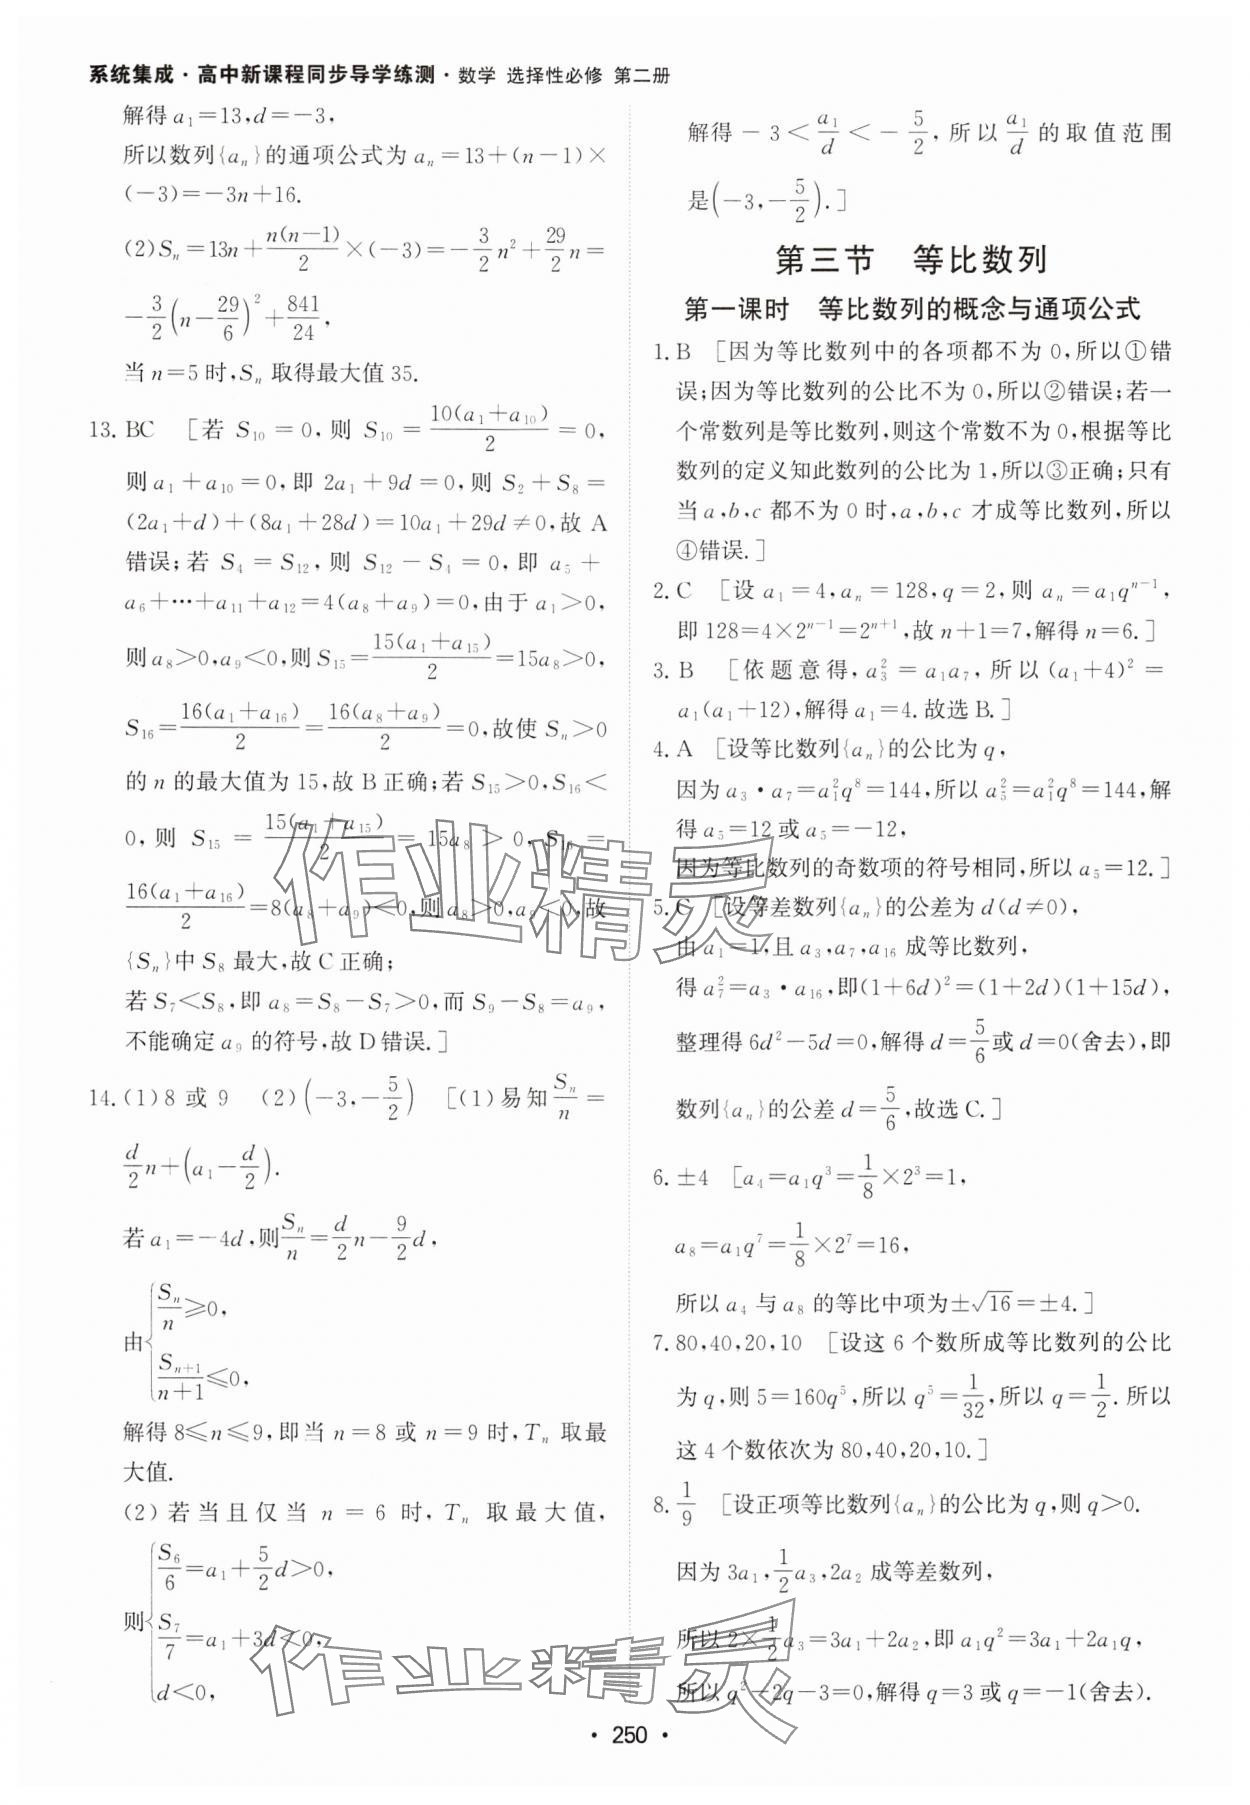 系统集成·高中新课程同步导学练测·数学 选择性必修 第二册
解得 a₁=13,d=-3,
所以数列{aₙ}的通项公式为 aₙ=13+(n-1)×
(-3)=-3n+16.
(2)Sₙ=13n+n(n-1)/2×(-3)=-3/2n²+29/2n=
-3/2(n-29/6)²+841/24,
当 n=5 时,Sₙ 取得最大值 35.
13. BC [若 S₁₀=0,则 S₁₀=10(a₁+a₁₀)/2=0,
则 a₁+a₁₀=0,即 2a₁+9d=0,则 S₂+S₈=
(2a₁+d)+(8a₁+28d)=10a₁+29d≠0,故 A
错误;若 S₄=S₁₂,则 S₁₂-S₄=0,即 a₅+
a₆+…+a₁₁+a₁₂=4(a₈+a₉)=0,由于 a₁>0,
则 a₈>0,a₉<0,则 S₁₅=15(a₁+a₁₅)/2=15a₈>0,
S₁₆=16(a₁+a₁₆)/2=16(a₈+a₉)/2=0,故使 Sₙ>0
的 n 的最大值为 15,故 B 正确;若 S₁₅>0,S₁₆<
0,则 S₁₅=15(a₁+a₁₅)/2=15a₈>0,S₁₆=
16(a₁+a₁₆)/2=8(a₈+a₉)<0,则 a₈>0,a₉<0,故
{Sₙ}中 S₈ 最大,故 C 正确;
若 S₇<S₈,即 a₈=S₈-S₇>0,而 S₉-S₈=a₉,
不能确定 a₉ 的符号,故 D 错误.]
14. (1)8 或 9 (2)(-3,-5/2) [(1)易知 Sₙ/n=
d/2n+(a₁-d/2).
若 a₁=-4d,则 Sₙ/n=d/2n-9/2d,
由{Sₙ/n≥0,
Sₙ₊₁/(n+1)≤0,
解得 8≤n≤9,即当 n=8 或 n=9 时,Tₙ 取最
大值.
(2)若当且仅当 n=6 时,Tₙ 取最大值,
则{S₆/6=a₁+5/2d>0,
S₇/7=a₁+3d<0,
d<0,
解得 -3<a₁/d<-5/2,所以 a₁/d 的取值范围
是(-3,-5/2).]
第三节 等比数列
第一课时 等比数列的概念与通项公式
1. B [因为等比数列中的各项都不为 0,所以①错
误;因为等比数列的公比不为 0,所以②错误;若一
个常数列是等比数列,则这个常数不为 0,根据等比
数列的定义知此数列的公比为 1,所以③正确;只有
当 a,b,c 都不为 0 时,a,b,c 才成等比数列,所以
④错误.]
2. C [设 a₁=4,aₙ=128,q=2,则 aₙ=a₁qⁿ⁻¹,
即 128=4×2ⁿ⁻¹=2ⁿ⁺¹,故 n+1=7,解得 n=6.]
3. B [依题意得,a₃²=a₁a₇,所以(a₁+4)²=
a₁(a₁+12),解得 a₁=4.故选 B.]
4. A [设等比数列{aₙ}的公比为 q,
因为 a₃·a₇=a₁²q⁸=144,所以 a₅²=a₁²q⁸=144,解
得 a₅=12 或 a₅=-12,
因为等比数列的奇数项的符号相同,所以 a₅=12.]
5. C [设等差数列{aₙ}的公差为 d(d≠0),
由 a₁=1,且 a₃,a₇,a₁₆ 成等比数列,
得 a₇²=a₃·a₁₆,即(1+6d)²=(1+2d)(1+15d),
整理得 6d²-5d=0,解得 d=5/6或 d=0(舍去),即
数列{aₙ}的公差 d=5/6,故选 C.]
6. ±4 [a₄=a₁q³=1/8×2³=1,
a₈=a₁q⁷=1/8×2⁷=16,
所以 a₄ 与 a₈ 的等比中项为±√16=±4.]
7. 80,40,20,10 [设这 6 个数所成等比数列的公比
为 q,则 5=160q⁵,所以 q⁵=1/32,所以 q=1/2.所以
这 4 个数依次为 80,40,20,10.]
8. 1/9 [设正项等比数列{aₙ}的公比为 q,则 q>0.
因为 3a₁,1/2a₃,2a₂ 成等差数列,
所以 2×1/2a₃=3a₁+2a₂,即 a₁q²=3a₁+2a₁q,
所以 q²-2q-3=0,解得 q=3 或 q=-1(舍去).
作业精灵
作业精灵
·250·